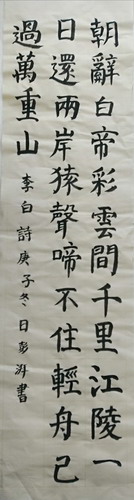 朝辭白帝彩雲間千里江陵一
日還兩岸猿聲啼不住輕舟已
過萬重山
李白詩庚子冬日彭湃書